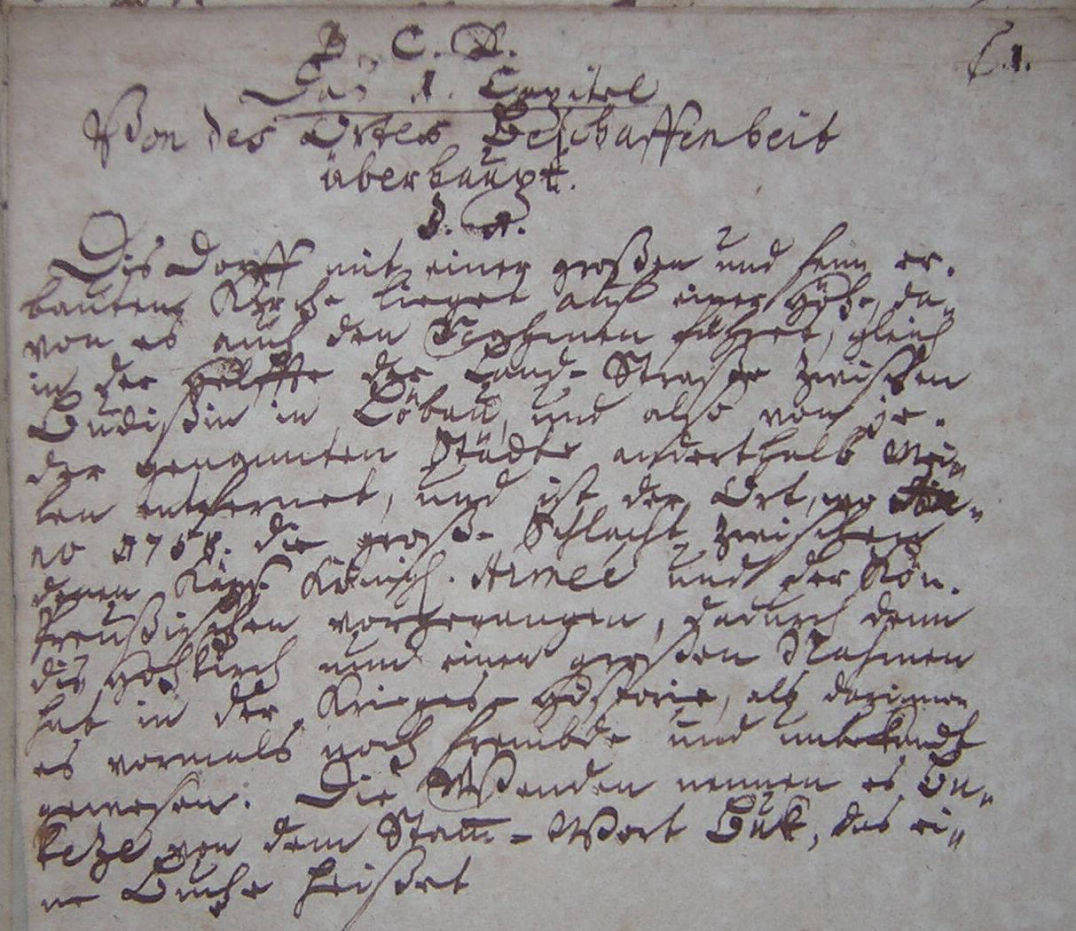 B. C. D.
Das 1. Capitel
Von des Ortes Beschaffenheit
überhaupt.
§. 1.
Dis Dorff mit einer großen und schön er-
bauten Kirche lieget auf einer Höhe, da-
von es auch den Nahmen führet, gleich
in der Helffte der Land-Straße zwischen
Budißin und Löbau, und also von je-
der genannten Städte anderthalb Mei-
len entfernet, und ist der Ort, wo An-
no 1758. die große Schlacht zwischen
denen Kayß. Königl. Armee und der Kön.
Preußischen vorgegangen, dadurch denn
dis Hochkirch nun einen großen Nahmen
hat in der Krieges-Historie, als darinnen
es vormals noch frembde und unbekandt
gewesen. Die Wenden nennen es Bu-
keze von dem Stam-Wort Buk, das ei-
ne Buche heißet